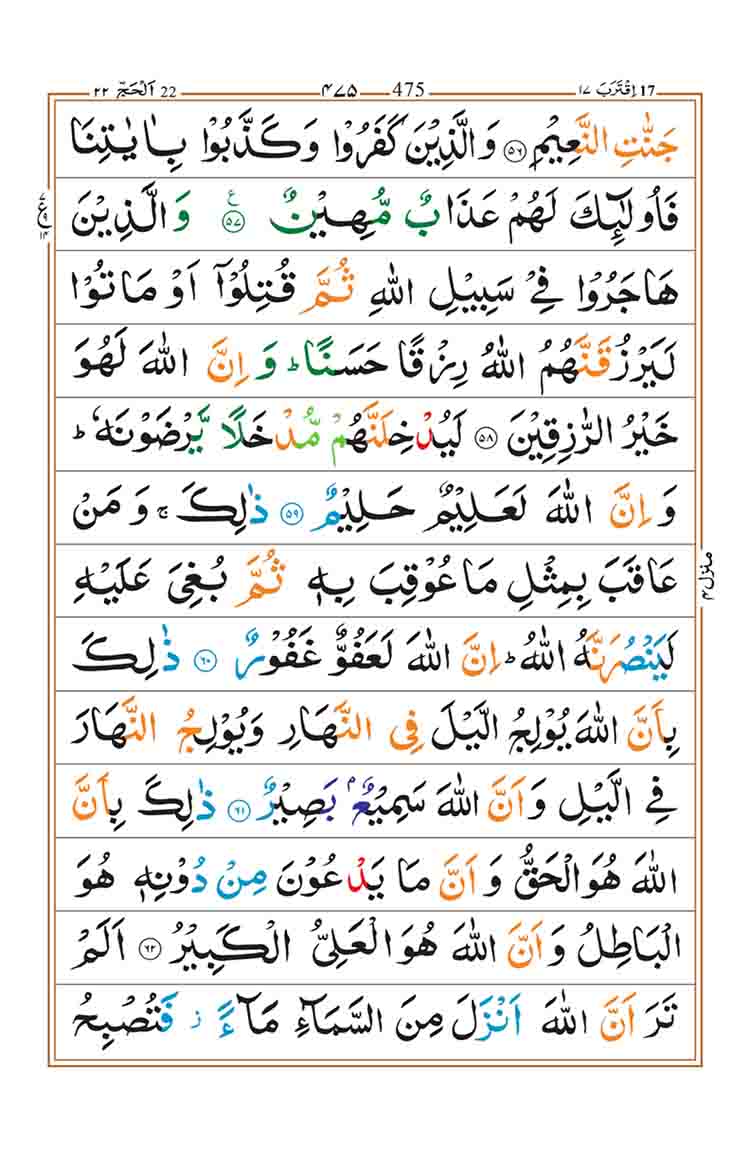 22 اَلْحَجّ ٢٢ 475 ۴۷۵ 17 اِقْتَرَبَ ١٧
جَنّٰتِ النَّعِیْمِ ۝۵۶ وَالَّذِیْنَ كَفَرُوْا وَكَذَّبُوْا بِاٰیٰتِنَا
فَاُولٰٓئِكَ لَهُمْ عَذَابٌ مُّهِیْنٌ ۝۵۷ ع وَالَّذِیْنَ
هَاجَرُوْا فِیْ سَبِیْلِ اللّٰهِ ثُمَّ قُتِلُوْۤا اَوْ مَاتُوْا
لَیَرْزُقَنَّهُمُ اللّٰهُ رِزْقًا حَسَنًا ؕ وَ اِنَّ اللّٰهَ لَهُوَ
خَیْرُ الرّٰزِقِیْنَ ۝۵۸ لَیُدْخِلَنَّهُمْ مُّدْخَلًا یَّرْضَوْنَهٗ ؕ
وَ اِنَّ اللّٰهَ لَعَلِیْمٌ حَلِیْمٌ ۝۵۹ ذٰلِكَ ۚ وَ مَنْ
عَاقَبَ بِمِثْلِ مَا عُوْقِبَ بِهٖ ثُمَّ بُغِیَ عَلَیْهِ
لَیَنْصُرَنَّهُ اللّٰهُ ؕ اِنَّ اللّٰهَ لَعَفُوٌّ غَفُوْرٌ ۝۶۰ ذٰلِكَ
بِاَنَّ اللّٰهَ یُوْلِجُ الَّیْلَ فِی النَّهَارِ وَیُوْلِجُ النَّهَارَ
فِی الَّیْلِ وَ اَنَّ اللّٰهَ سَمِیْعٌۢ بَصِیْرٌ ۝۶۱ ذٰلِكَ بِاَنَّ
اللّٰهَ هُوَ الْحَقُّ وَ اَنَّ مَا یَدْعُوْنَ مِنْ دُوْنِهٖ هُوَ
الْبَاطِلُ وَ اَنَّ اللّٰهَ هُوَ الْعَلِیُّ الْكَبِیْرُ ۝۶۲ اَلَمْ
تَرَ اَنَّ اللّٰهَ اَنْزَلَ مِنَ السَّمَآءِ مَآءً ز فَتُصْبِحُ
٧ ع ٩ ١۴
منزل ۴